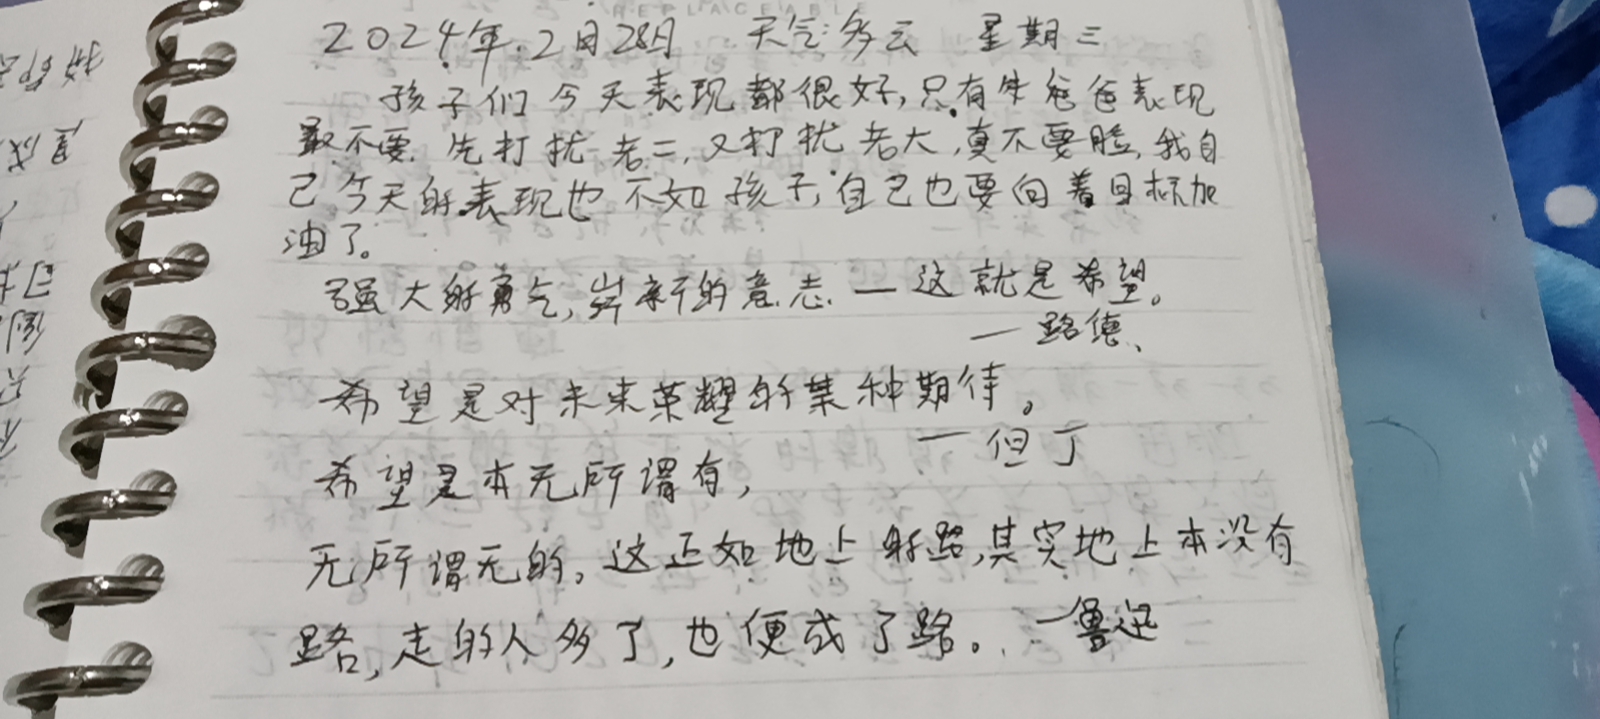 REPLACEABLE
2024年.2月28日 天气:多云 星期三
孩子们今天表现都很好,只有朱爸爸表现
最不要.先打扰老二,又打扰老大,真不要脸,我自
己今天的表现也不如孩子,自己也要向着目标加
油了。
强大的勇气,崭新的意志.—这就是希望。
—路德、
希望是对未来荣耀的某种期待。
—但丁
希望是本无所谓有,
无所谓无的。这正如地上的路,其实地上本没有
路,走的人多了,也便成了路。—鲁迅